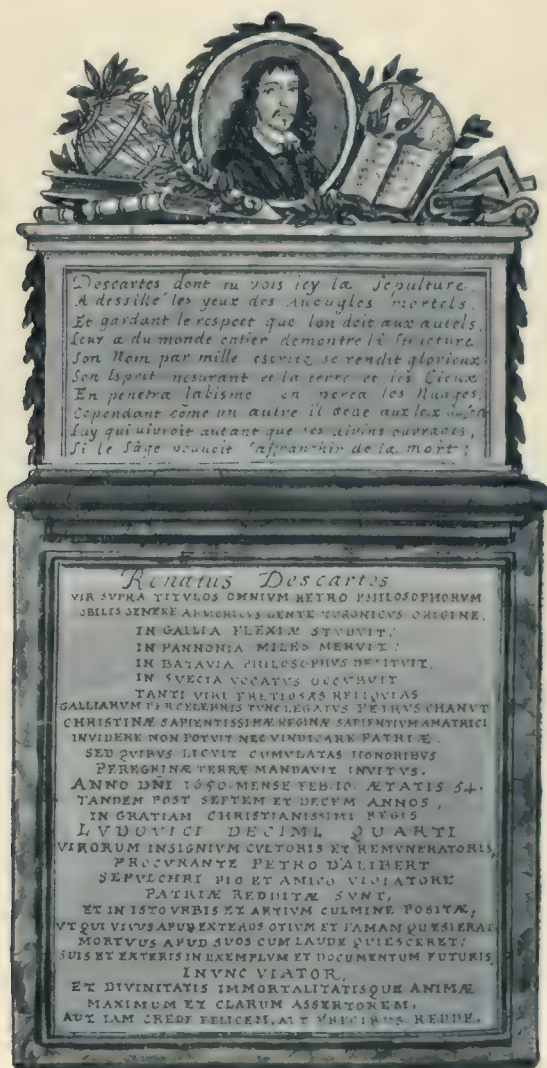 Descartes dont tu vois icy la Sepulture,
A dessillé les yeux des Aueugles mortels,
Et gardant le respect que lon doit aux autels,
Leur a du monde entier demontre la structure
Son Nom par mille escritz se rendit glorieux
Son Esprit mesurant et la terre et les Cieux
En penetra labisme en perca les Nuages,
Cependant cõme un autre il cede aux loix
Luy qui uivroit autant que ses divins ouvrages,
Si le Sâge pouuoit s'affranchir de la mort;
Renatus Descartes
VIR SUPRA TITULOS OMNIUM RETRO PHILOSOPHORVM
OBILIS GENERE ARMORICVS GENTE TVRONICVS ORIGINE,
IN GALLIA FLEXIÆ STVDVIT,
IN PANNONIA MILES MERVIT:
IN BATAVIA PHILOSOPHVS DELITVIT,
IN SVECIA VOCATVS OCCVBVIT
TANTI VIRI PRETIOSAS RELIQVIAS
GALLIARVM PERCELEBRIS TVNC LEGATVS PETRVS CHANVT
CHRISTINÆ SAPIENTISSIMÆ REGINÆ SAPIENTIVM AMATRICI
INVIDERE NON POTVIT NEC VINDICARE PATRIÆ.
SED QVIBVS LICVIT CVMVLATAS HONORIBVS
PEREGRINÆ TERRÆ MANDAVIT INVITVS.
ANNO DÑI 1650. MENSE FEB. 10. ÆTATIS 54.
TANDEM POST SEPTEM ET DECEM ANNOS,
IN GRATIAM CHRISTIANISSIMI REGIS
LVDOVICI DECIMI QVARTI
VIRORVM INSIGNIVM CVLTORIS ET REMVNERATORIS,
PROCVRANTE PETRO D'ALIBERT
SEPVLCHRI PIO ET AMICO VIOLATORE
PATRIÆ REDDITÆ SVNT,
ET IN ISTO VRBIS ET ARTIVM CVLMINE POSITÆ,
VT QVI VIVVS APVD EXTEROS OTIVM ET FAMAM QVÆSIERAT
MORTVVS APVD SVOS CVM LAVDE QVIESCERET;
SVIS ET EXTERIS IN EXEMPLVM ET DOCVMENTVM FVTVRVS
I NVNC VIATOR,
ET DIVINITATIS IMMORTALITATISQVE ANIMÆ
MAXIMVM ET CLARVM ASSERTOREM,
AVT IAM CREDE FELICEM, AVT PRECIBVS REDDE.